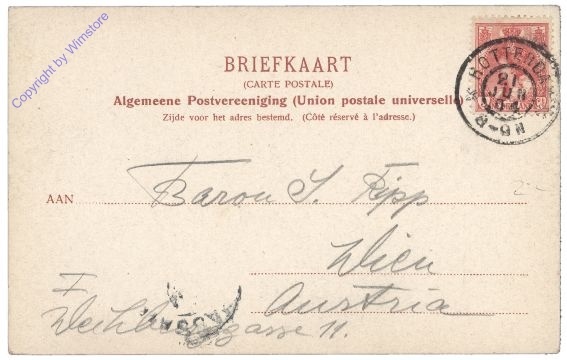 Copyright by Wimstore
BRIEFKAART
(CARTE POSTALE)
Algemeene Postvereeniging (Union postale universelle)
Zijde voor het adres bestemd. (Côté réservé à l'adresse.)
ROTTERDAM
21
JUN
04
AAN Baron S. Tripp
Wien
I Austria
11.